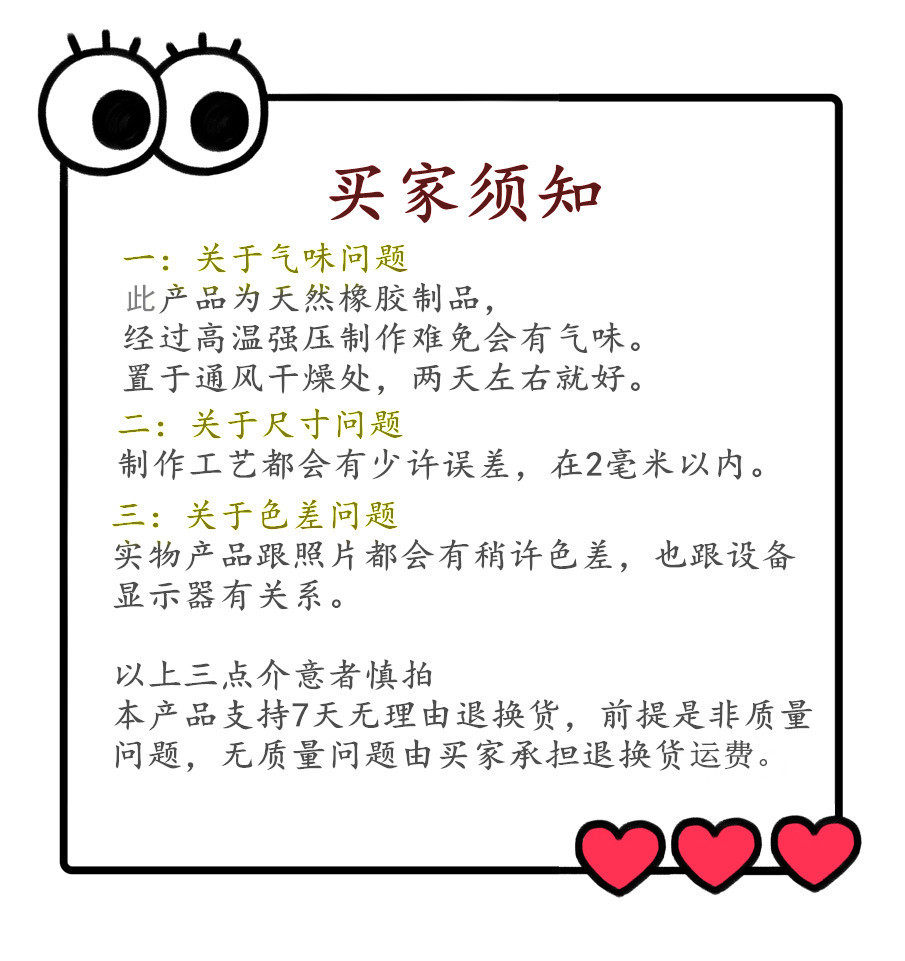 买家须知
一：关于气味问题
此产品为天然橡胶制品，
经过高温强压制作难免会有气味。
置于通风干燥处，两天左右就好。
二：关于尺寸问题
制作工艺都会有少许误差，在2毫米以内。
三：关于色差问题
实物产品跟照片都会有稍许色差，也跟设备
显示器有关系。
以上三点介意者慎拍
本产品支持7天无理由退换货，前提是非质量
问题，无质量问题由买家承担退换货运费。